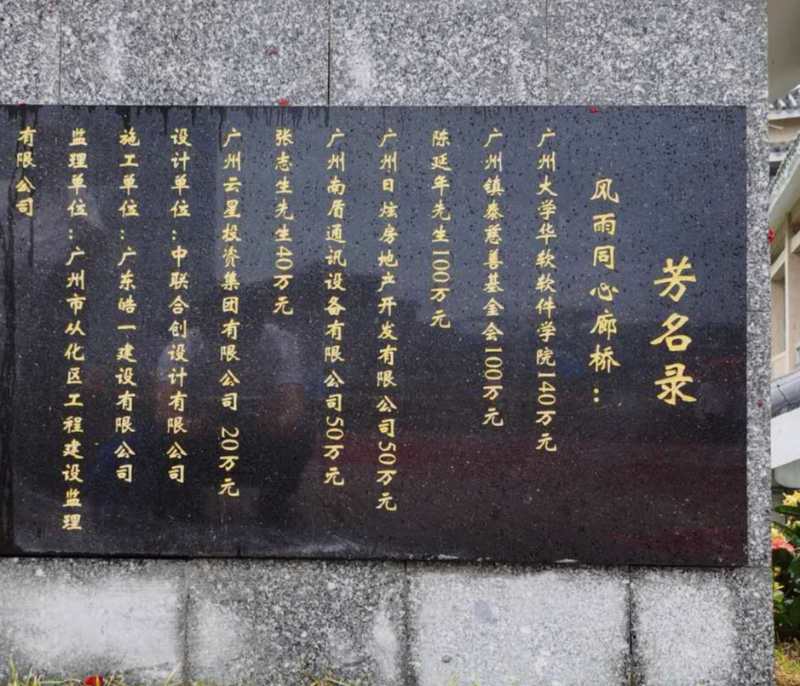 芳名录
风雨同心廊桥：
广州大学华软软件学院140万元
广州镇泰慈善基金会100万元
陈延年先生100万元
广州日炫房地产开发有限公司50万元
广州南盾通讯设备有限公司50万元
张志生先生40万元
广州云星投资集团有限公司 20万元
设计单位：中联合创设计有限公司
施工单位：广东皓一建设有限公司
监理单位：广州市从化区工程建设监理
有限公司